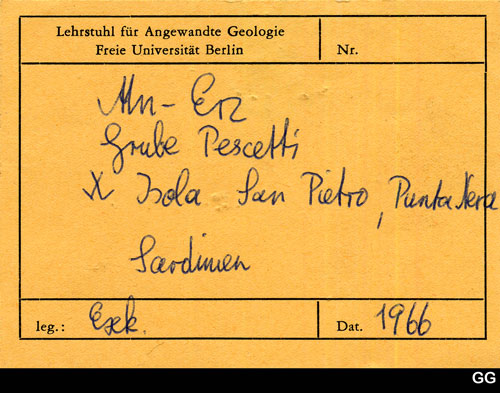 Lehrstuhl für Angewandte Geologie
Freie Universität Berlin
Nr.
Mn-Erz
Grube Pescetti
X Isola San Pietro, Punta Nera
Sardinien
leg.: Exk.
Dat. 1966
GG